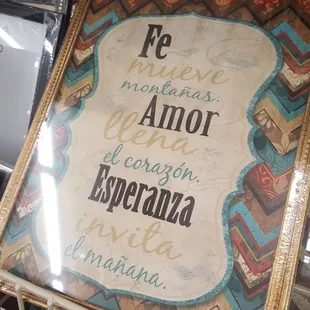 Fe
mueve
montañas.
Amor
llena
el corazón.
Esperanza
invita
el mañana.